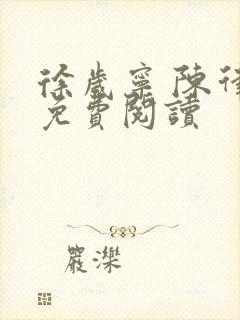 徐歲寧陳律
免費閱讀
嚴濼